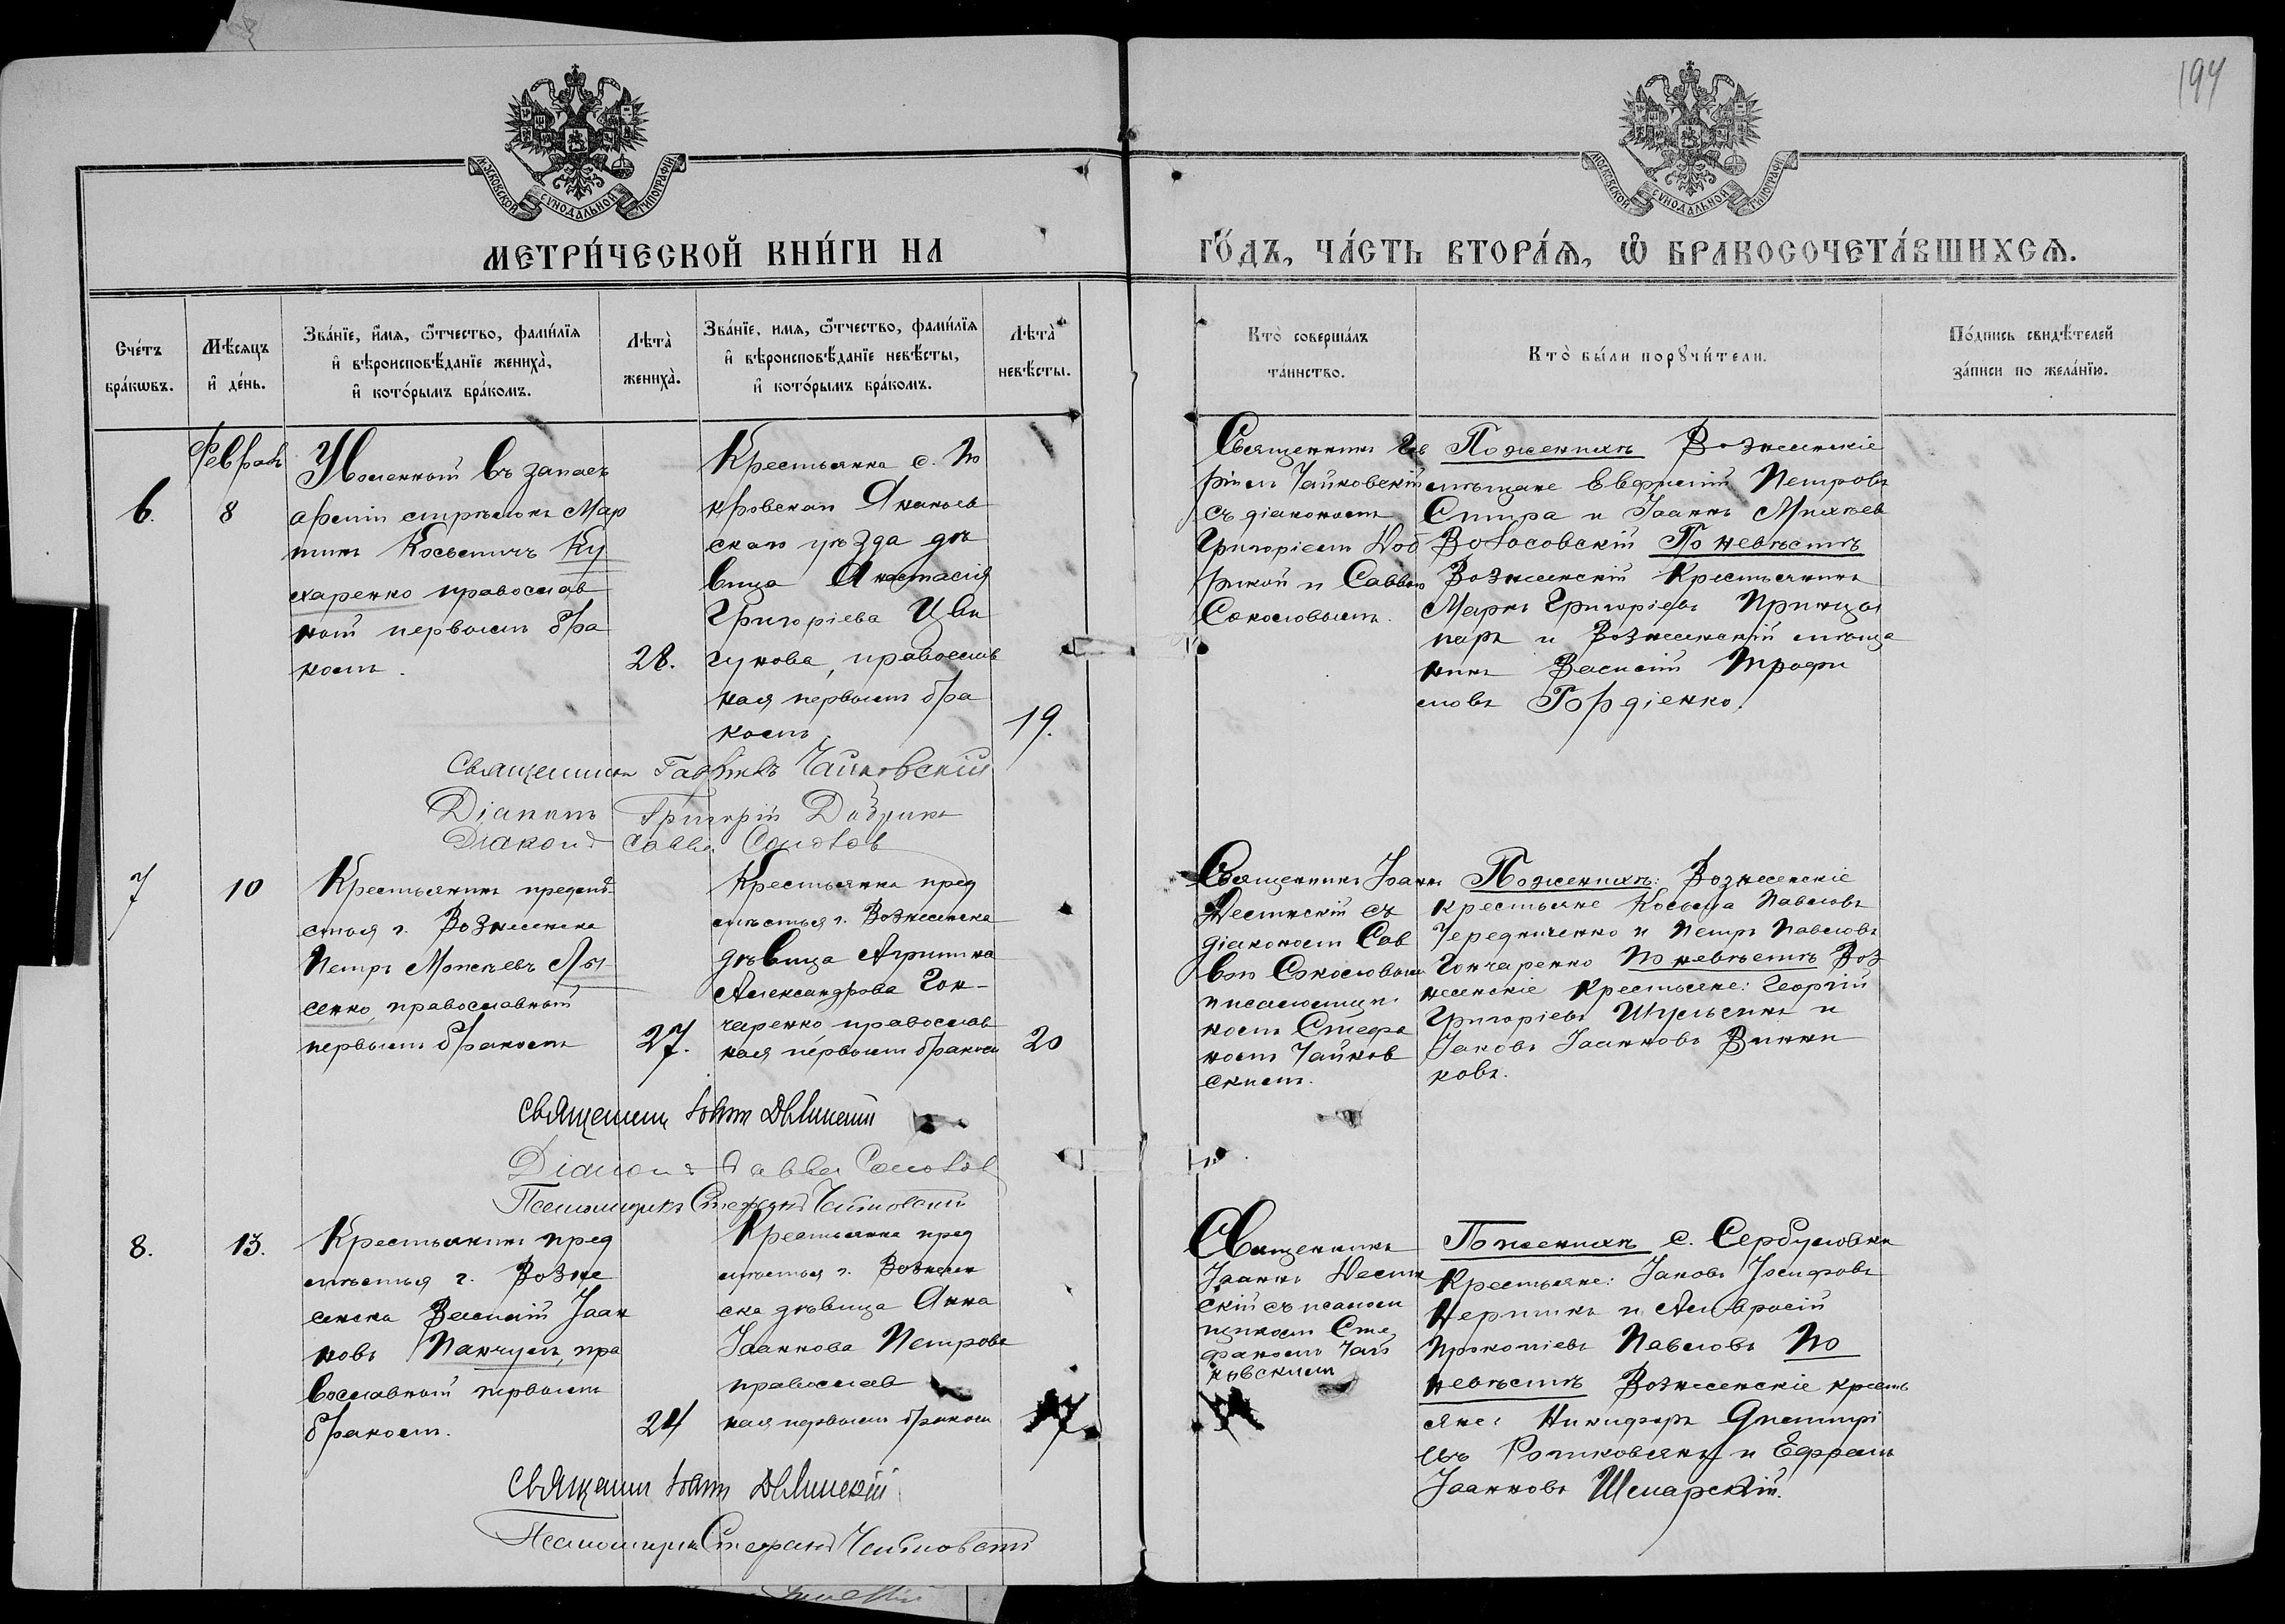 194
МОСКОВСКОЙ СУНОДАЛЬНОЙ ТИПОГРАФІИ
МОСКОВСКОЙ СУНОДАЛЬНОЙ ТИПОГРАФІИ
МЕТРИ́ЧЕСКОЙ КНИ́ГИ НА
ГО́ДЪ, ЧА́СТЬ ВТОРА́Ѧ, Ѽ БРАКОСОЧЕТА́ВШИХСѦ.
Сче́тъ бра́кѡвъ.
Мѣ́сяцъ и҆ де́нь.
Зва́нїе, и҆́мѧ, ѻ҆́тчество, фами́лїѧ
и҆ вѣроисповѣ́данїе жениха̀,
и҆ кото́рымъ бра́комъ.
Лѣта̀ жениха̀.
Зва́нїе, имѧ, ѻ҆́тчество, фами́лїѧ
и҆ вѣроисповѣ́данїе невѣ́сты,
и҆ кото́рымъ бра́комъ.
Лѣта̀ невѣ́сты.
Кто̀ соверша́лъ та́инство.
Кто̀ бы́ли порꙋчи́тели.
По́дпись свидѣ́телей за́писи по жела́нїю.
Февраль
6.
8
Уволенный въ запасъ
арміи стрѣлокъ Мар
тинъ Косьмичъ Ку
харенко православ
ный первымъ бра
комъ.
28.
Крестьянка с. По
кровскаго Ананьев
скаго уѣзда дѣ
вица Анастасія
Григоріева Цви
гунова, православ
ная первымъ бра
комъ
19.
Священникъ Гав
ріилъ Чайковскій
съ діакономъ
Григоріемъ Доб
рикой и Саввою
Соколовымъ.
По женихѣ Вознесенскіе
мѣщане Евфимій Петровъ
Спира и Іоаннъ Михѣев
Волосовскій По невѣстѣ
Вознесенскій Крестьянинъ
Маркъ Григоріевъ
и Вознесенскій мѣща
нинъ Василій Трофи
мовъ Гордіенко.
Священникъ Гавріилъ Чайковскій
Діаконъ Григорій
Діаконъ Савва Соколов
7
10
Крестьянинъ предмѣ
стья г. Вознесенска
Петръ Моисѣевъ Лы
сенко, православный
первымъ бракомъ
27.
Крестьянка пред
мѣстья г. Вознесенска
дѣвица Агрипина
Александрова Гон-
чаренко православ
ная первымъ бракомъ
20
Священникъ Іоаннъ
съ
діакономъ Сав
вою Соколовымъ
псаломщи
комъ Стефа
номъ Чайков
скимъ.
По женихѣ: Вознесенскіе
крестьяне Косьма Павловъ
Чередниченко и Петръ Павловъ
Гончаренко По невѣстѣ Воз
несенскіе Крестьяне: Георгій
Григоріевъ и
Іаковъ Іоанновъ Винни
ковъ.
Священникъ Іоаннъ
Діаконъ Савва Соколов
Псаломщикъ Стефанъ Чайковскій
8.
13.
Крестьянинъ пред
мѣстья г. Возне
сенска Василій Іоан
новъ Панчулъ, пра
вославный первымъ
бракомъ.
24
Крестьянка пред
мѣстья г. Вознесен
ска дѣвица Анна
Іоаннова Петрова
православ
ная первымъ бракомъ
Священникъ
Іоаннъ
скій съ псалом
щикомъ Сте
фаномъ Чай
ковскимъ
По женихѣ с. Сербуловки
Крестьяне: Іаковъ Іосифовъ
и Амвросій
Прокопіевъ Павловъ По
невѣстѣ Вознесенскіе кресть
яне: Никифоръ Димитрі
евъ и Ефремъ
Іоанновъ
Священникъ Іоаннъ
Псаломщикъ Стефанъ Чайковскій